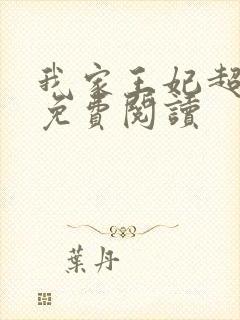 我家王妃超
免費閱讀
葉丹